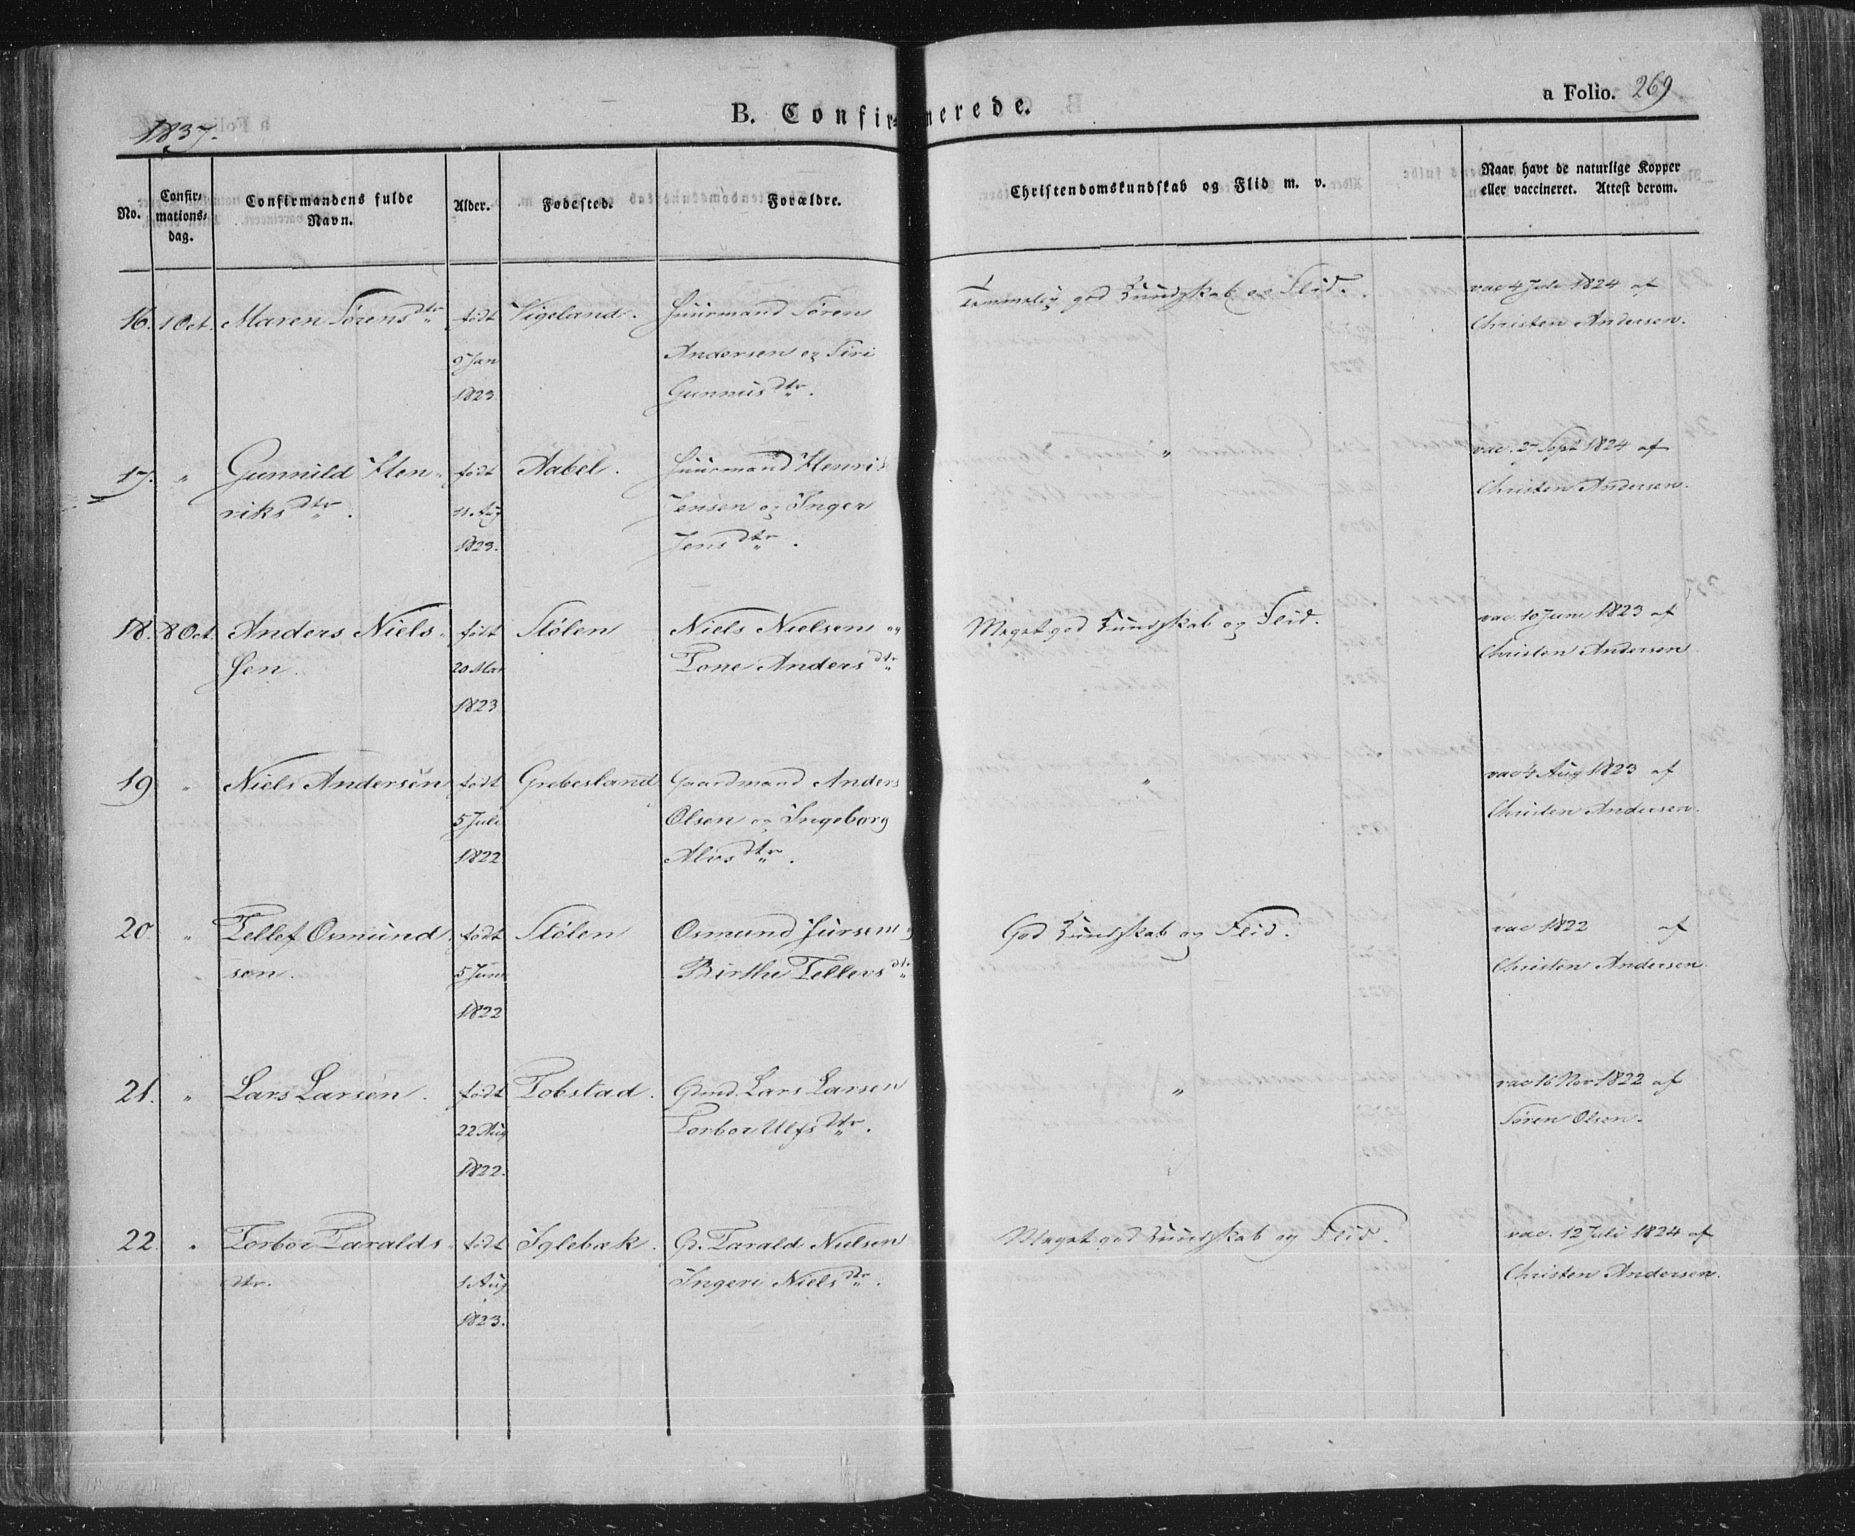 1837.
B. Confirmerede.
a Folio. 269
No.
Confir-
mations-
dag.
Confirmandens fulde
Navn.
Alder.
Fødested.
Forældre.
Christendomskundskab og Flid m. v.
Naar havt de naturlige Kopper
eller vaccineret. Attest derom.
16. 1 Oct. Maren Sørensdtr født Vigeland. Huusmand Søren Temmelig god Kundskab og Flid. vac 4 Juli 1824 af
9 Jan Andersen og Siri Christen Andersen.
1823. Gunnusdtr.
17. " Gunnild Hen- født Aabel. Huusmand Henrik " vac. 27 Sept 1824 af
riksdtr. 11 Aug Jensen og Inger Christen Andersen.
1823. Jensdtr.
18. 8 Oct. Anders Niels- født Stølen Niels Nielsen og Meget god Kundskab og Flid. vac 10 Juni 1823 af
sen. 20 Mar Tone Andersdtr Christen Andersen
1823
19 " Niels Andersen født Grebesland Gaardmand Anders " vac 4 Aug 1823 af
5 Juli Olsen og Ingeborg Christen Andersen.
1822 Alvsdtr.
20. " Tellef Osmund født Stølen Osmund Jursen og God Kundskab og Flid. vac 1822 af
sen. 5 Juni Birthe Tellevsdtr Christen Andersen
1822
21. " Lars Larsen. født Tobstad. Gdmd. Lars Larsen " vac 16 Nov 1822 af
22 Aug Torbor Ulfsdtr. Søren Olsen.
1822.
22. " Torbor Taralds- født Iglebæk. G. Tarald Nielsen Meget god Kundskab og Flid. vac. 12 Juli 1824 af
dtr. 1 Aug Ingeri Nielsdtr. Christen Andersen.
1823.